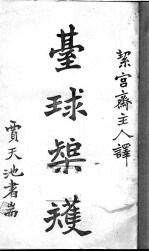 絜宮齋主人譯
臺球榘矱
賈天池書耑